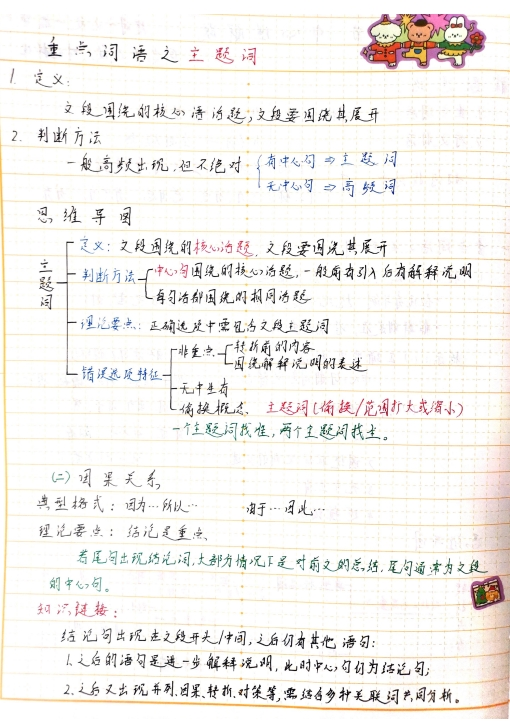 重点词语之主题词
1. 定义:
文段围绕的核心语话题,文段要围绕其展开
2. 判断方法
一般高频出现,但不绝对
有中心句⇒主题词
无中心句⇒高频词
思维导图
主题词
定义:文段围绕的核心话题,文段要围绕其展开
判断方法
中心句围绕的核心话题,一般前有引入后有解释说明
每句话都围绕的相同话题
理论要点:正确选项中需包含文段主题词
错误选项特征
非重点
转折前的内容
围绕解释说明的表述
无中生有
偷换概念 主题词(偷换/范围扩大或缩小)
一个主题词找性,两个主题词找主。
(二)因果关系
典型格式:因为…所以… 由于…因此…
理论要点:结论是重点
若尾句出现结论词,大部分情况下是对前文的总结,尾句通常为文段
的中心句。
知识链接:
结论句出现在文段开头/中间,之后仍有其他语句:
1.之后的语句是进一步解释说明,此时中心句仍为结论句;
2.之后又出现并列、因果、转折、对策等,需结合多种关联词共同分析。